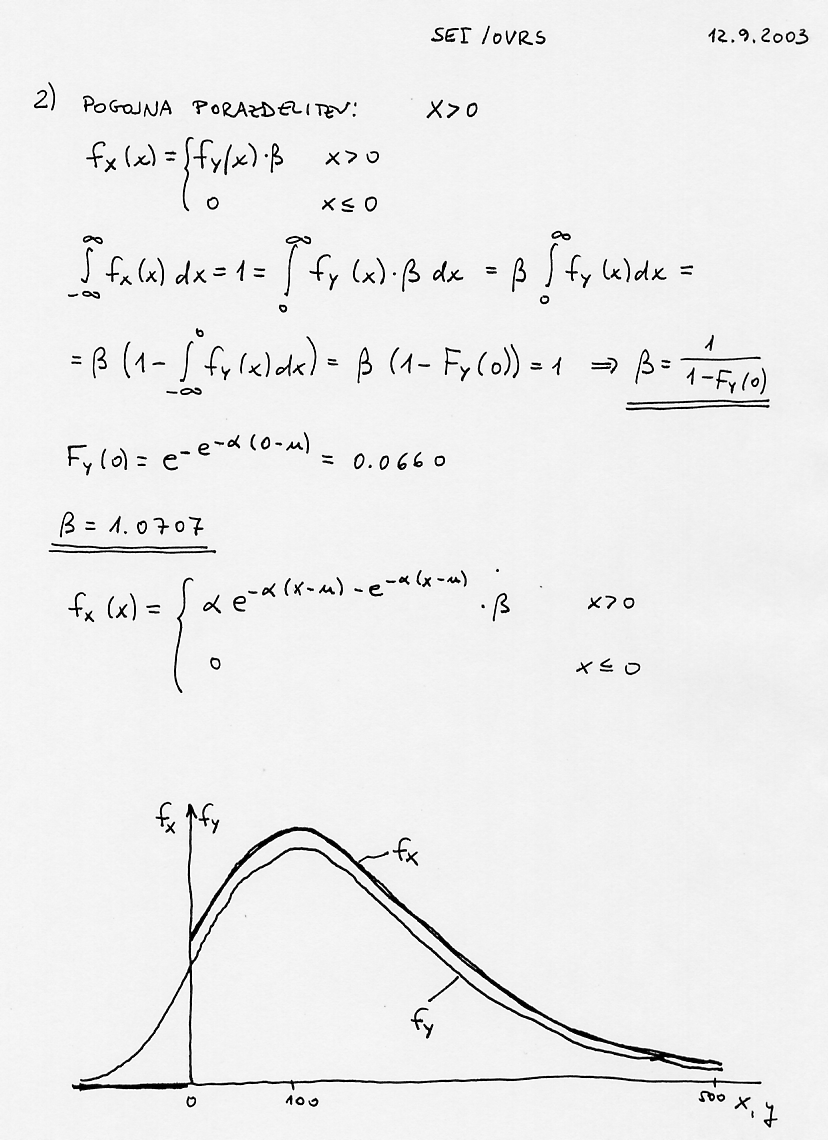 SEI / OVRS 12.9.2003
2) POGOJNA PORAZDELITEV: X>0
f_X(x) = { f_Y(x)·β x>0
0 x≤0
∫_{-∞}^{∞} f_X(x) dx = 1 = ∫_0^∞ f_Y(x)·β dx = β ∫_0^∞ f_Y(x)dx =
= β (1 - ∫_{-∞}^0 f_Y(x)dx) = β (1 - F_Y(0)) = 1 ⇒ β = 1/(1-F_Y(0))
F_Y(0) = e^{-e^{-α(0-u)}} = 0.0660
β = 1.0707
f_X(x) = { α e^{-α(x-u) - e^{-α(x-u)}} · β x>0
0 x≤0
f_X f_Y
f_X
f_Y
0 100 500 x, y